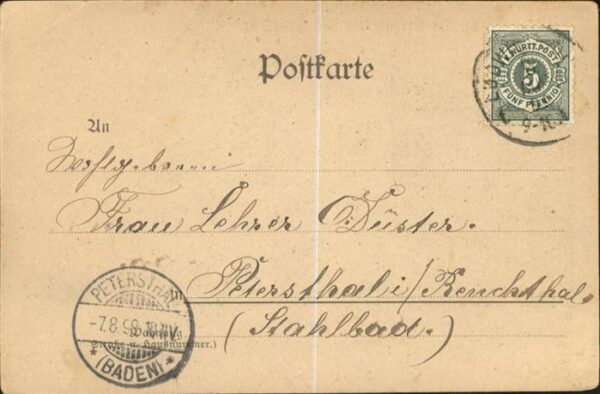 K. WÜRTT. POST
5
FÜNF PFENNIG
Postkarte
An
Wohlgeboren
Frau Lehrer O. Düster.
Petersthal i/Renchthal.
(Stahlbad.)
PETERSTHAL
-7.8.98.
(BADEN)
Wohnung
(Straße u. Hausnummer.)